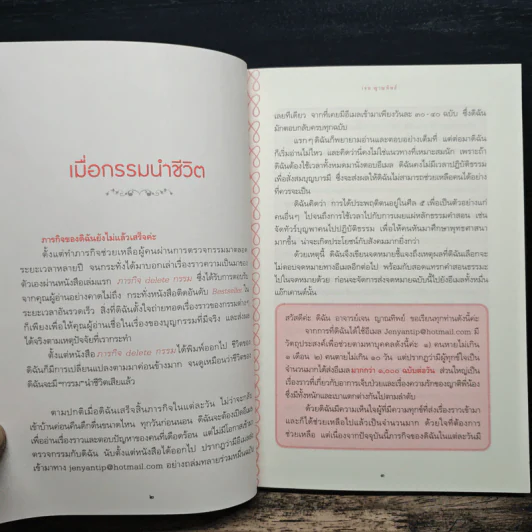 เมื่อกรรมนำชีวิต
ภารกิจของดิฉันยังไม่แล้วเสร็จค่ะ
ตั้งแต่ทำภารกิจช่วยเหลือผู้คนผ่านการตรวจกรรมมาตลอด
ระยะเวลาหลายปี จนกระทั่งได้มาบอกเล่าเรื่องราวความเป็นมาของ
ตัวเองผ่านหนังสือเล่มแรก ภารกิจ delete กรรม ซึ่งได้รับการตอบรับ
จากคุณผู้อ่านอย่างคาดไม่ถึง กระทั่งหนังสือติดอันดับ Bestseller ใน
ระยะเวลาอันรวดเร็ว สิ่งที่ดิฉันตั้งใจถ่ายทอดเรื่องราวของกรรมต่างๆ
ก็เพียงเพื่อให้คุณผู้อ่านเชื่อในเรื่องของบุญกรรมที่มีจริง และส่งผล
ได้จริงตามเหตุปัจจัยที่เรากระทำ
ตั้งแต่หนังสือ ภารกิจ delete กรรม ได้พิมพ์ออกไป ชีวิตของ
ดิฉันก็มีการเปลี่ยนแปลงตามมาค่อนข้างมาก จนดูเหมือนว่าชีวิตของ
ดิฉันจะมี "กรรม" นำชีวิตเสียแล้ว
ตามปกติเมื่อดิฉันเสร็จสิ้นภารกิจในแต่ละวัน ไม่ว่าจะกลับ
เข้าบ้านค่อนคืนดึกดื่นขนาดไหน ทุกวันก่อนนอน ดิฉันจะต้องเปิดอีเมล
เพื่ออ่านเรื่องราวและตอบปัญหาของคนที่เดือดร้อน แต่ไม่มีโอกาสเข้ามา
ตรวจกรรมกับดิฉัน นับตั้งแต่หนังสือได้ออกไป ปรากฏว่ามีอีเมลส่ง
เข้ามาทาง jenyantip@hotmail.com อย่างถล่มทลายร่วมหมื่นฉบับ
๒
เจน ญาณทิพย์
เลยทีเดียว จากที่เคยมีอีเมลเข้ามาเพียงวันละ ๓๐-๔๐ ฉบับ ซึ่งดิฉัน
มักตอบกลับครบทุกฉบับ
แรกๆ ดิฉันก็พยายามอ่านและตอบอย่างเต็มที่ แต่ต่อมาดิฉัน
ก็เริ่มอ่านไม่ไหว และคิดว่านี่คงไม่ใช่แนวทางที่เหมาะสมนัก เพราะถ้า
ดิฉันต้องใช้เวลาทั้งหมดมานั่งตอบอีเมล ดิฉันคงไม่มีเวลาปฏิบัติธรรม
เพื่อสั่งสมบุญบารมี ซึ่งจะส่งผลให้ดิฉันไม่สามารถช่วยเหลือคนได้อย่าง
ที่ควรจะเป็น
ดิฉันคิดว่า การได้ประพฤติตนอยู่ในศีล ๕ เพื่อเป็นตัวอย่างแก่
คนอื่นๆ ไปจนถึงการใช้เวลาไปกับการเผยแผ่หลักธรรมคำสอน เช่น
จัดทัวร์บุญพาคนไปปฏิบัติธรรม เพื่อให้คนหันมาศึกษาพุทธศาสนา
มากขึ้น น่าจะเกิดประโยชน์กับสังคมมากยิ่งกว่า
ด้วยเหตุนี้ ดิฉันจึงเขียนจดหมายชี้แจงถึงเหตุผลที่ดิฉันเลือกจะ
ไม่ตอบจดหมายทางอีเมลอีกต่อไป พร้อมกับสอดแทรกคำสอนธรรมะ
ไปในจดหมายด้วย ก่อนจะจัดการส่งจดหมายฉบับนี้ไปยังอีเมลทั้งหมื่น
แอ็กเคานต์นั้น
สวัสดีค่ะ ดิฉัน อาจารย์เจน ญาณทิพย์ ขอเรียนทุกท่านดังนี้ค่ะ
จากการที่ดิฉันได้ใช้อีเมล Jenyantip@hotmail.com มี
วัตถุประสงค์เพื่อช่วยตามหาบุคคลดังนี้ค่ะ ๑) คนหายไม่เกิน
๑ เดือน ๒) คนตายไม่เกิน ๑๐ วัน แต่ปรากฏว่ามีผู้ทุกข์ใจเป็น
จำนวนมากได้ส่งอีเมล มากกว่า ๑,๐๐๐ ฉบับต่อวัน ส่วนใหญ่เป็น
เรื่องราวที่เกี่ยวกับอาการเจ็บป่วยและเรื่องความรักของญาติพี่น้อง
ซึ่งมีทั้งหนักและเบาแตกต่างกันไปตามลำดับ
ด้วยดิฉันมีความเห็นใจผู้ที่มีความทุกข์ที่ส่งเรื่องราวเข้ามา
และก็ได้ช่วยเหลือไปแล้วเป็นจำนวนมาก ด้วยใจที่ต้องการ
ช่วยเหลือ แต่เนื่องจากปัจจุบันนี้ภารกิจของดิฉันในแต่ละวันมี
๓